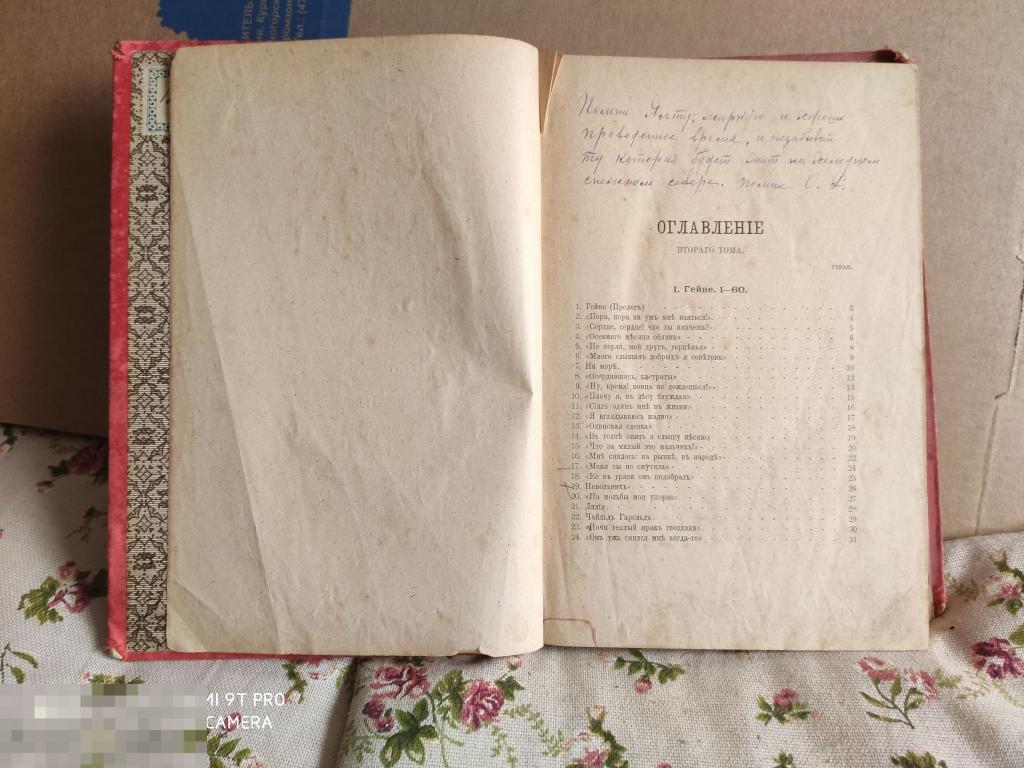 ИТЕЛЬ
Помни Ялту, жаркую и хорошо
проведенное время, и незабывай
ту которая будет жить на холодном
снежном севере. помни С.
ОГЛАВЛЕНІЕ
ВТОРАГО ТОМА.
СТРАН.
I. Гейне. 1—60.
1. Гейне (Прологъ) 3
2. «Пора, пора за умъ мнѣ взяться!» 4
3. «Сердце, сердце! что ты плачешь?» 5
4. «Осенняго мѣсяца обликъ» 6
5. «Не теряй, мой другъ, терпѣнья» 8
6. «Много слышалъ добрыхъ я совѣтовъ» 9
7. На морѣ. 10
8. «Осердившись, кастраты» 12
9. «Ну, время! конца не дождешься!» 13
10. «Плачу я, въ лѣсу блуждая» 15
11. «Сіялъ одинъ мнѣ въ жизни» 16
12. «Я вглядываюсь жадно» 17
13. «Одинокая слезка» 18
14. «Въ толпѣ опять я слышу пѣсню» 19
15. «Что за милый это мальчикъ!» 20
16. «Мнѣ снилось: на рынкѣ, въ народѣ» 22
17. «Меня ты не смутила» 24
18. «Ее въ грязи онъ подобралъ» 25
19. Невольникъ 26
20. «На мольбы мои упорно» 27
21. Лилія 28
22. Чайльдъ Гарольдъ. 29
23. «Ночи теплый мракъ гвоздики» 30
24. «Онъ ужь снился мнѣ когда-то» 31
MI 9T PRO
CAMERA